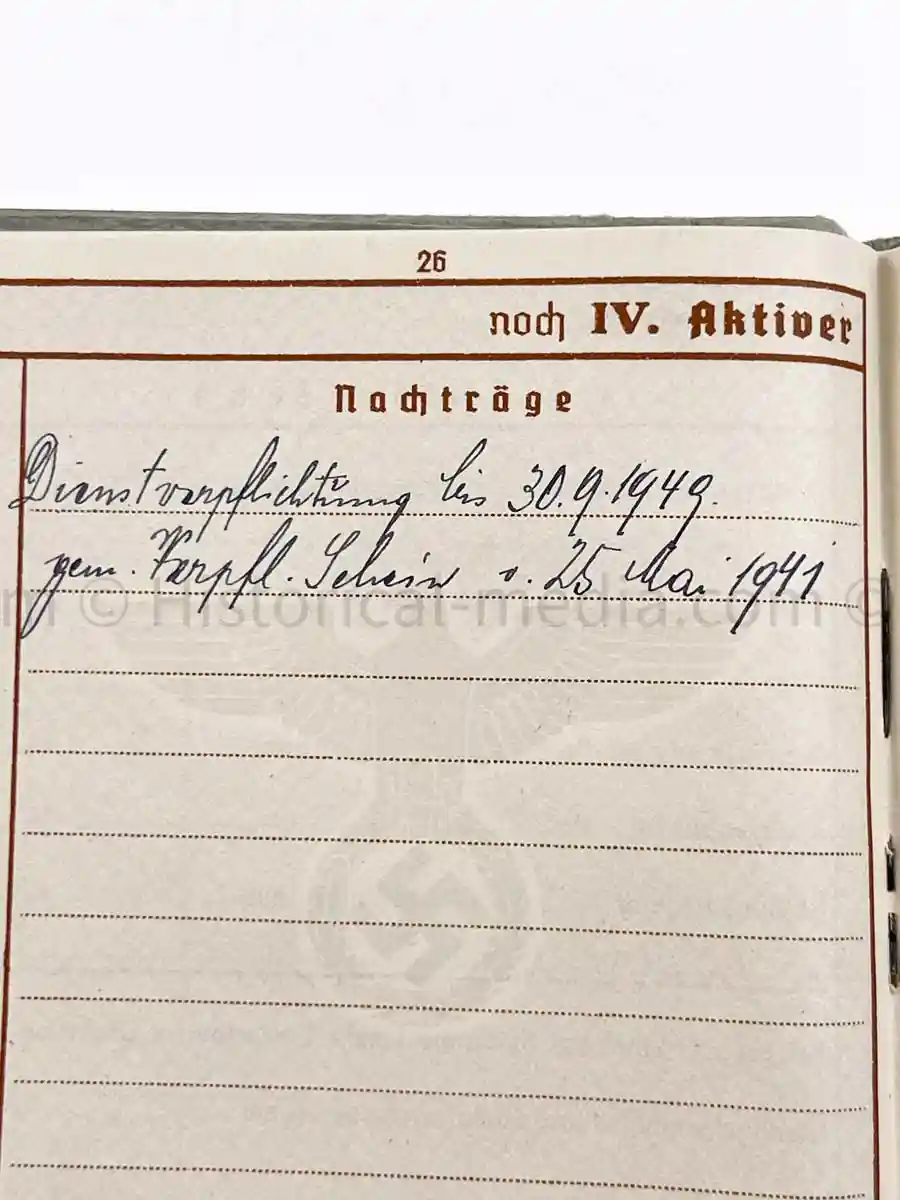 26
noch IV. Aktiver
Nachträge
Dienstverpflichtung bis 30.9.1949.
gem. Verpfl. Schein v. 25 Mai 1941
m © Historical-media.com ©